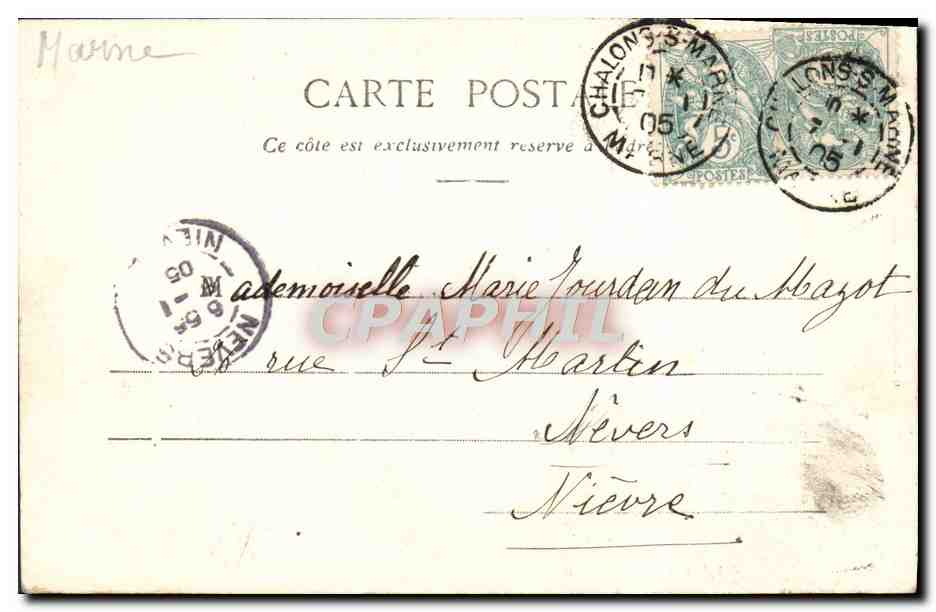 Marne
CARTE POSTALE
Ce côté est exclusivement réservé à l'adresse
CHALONS-S-MARNE
MARNE
11
05
5
POSTES
POSTES
CHALONS-S-MARNE
MARNE
05
NIEVRE
05
NEVERS
Mademoiselle Marie Jourdan du Mazot
rue St Martin
Nêvers
Nièvre
CPAPHIL